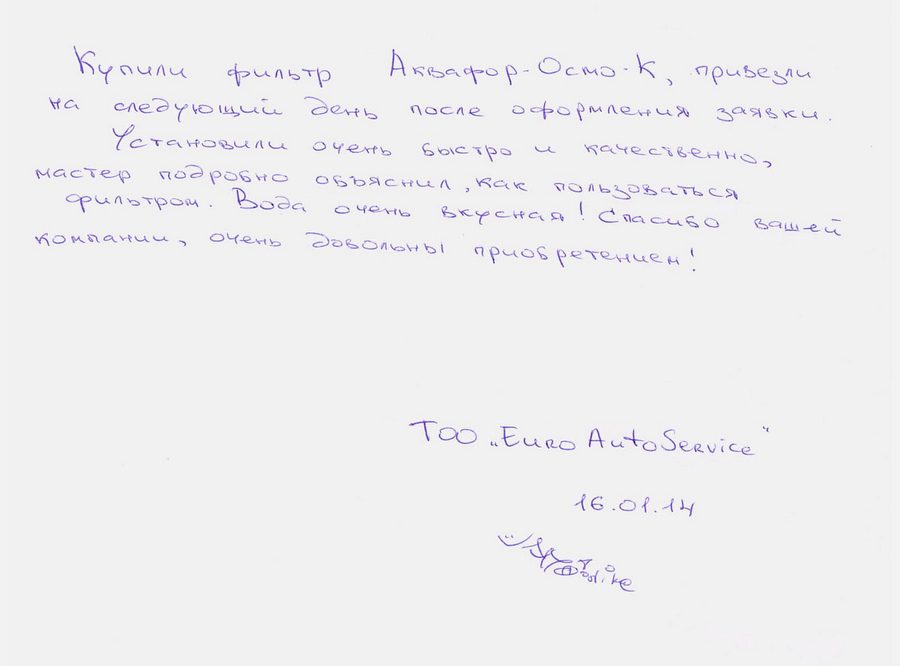 Купили фильтр Аквафор-Осмо-К, привезли
на следующий день после оформления заявки.
Установили очень быстро и качественно,
мастер подробно объяснил, как пользоваться
фильтром. Вода очень вкусная! Спасибо вашей
компании, очень довольны приобретением!
ТОО „Euro AutoService"
16.01.14